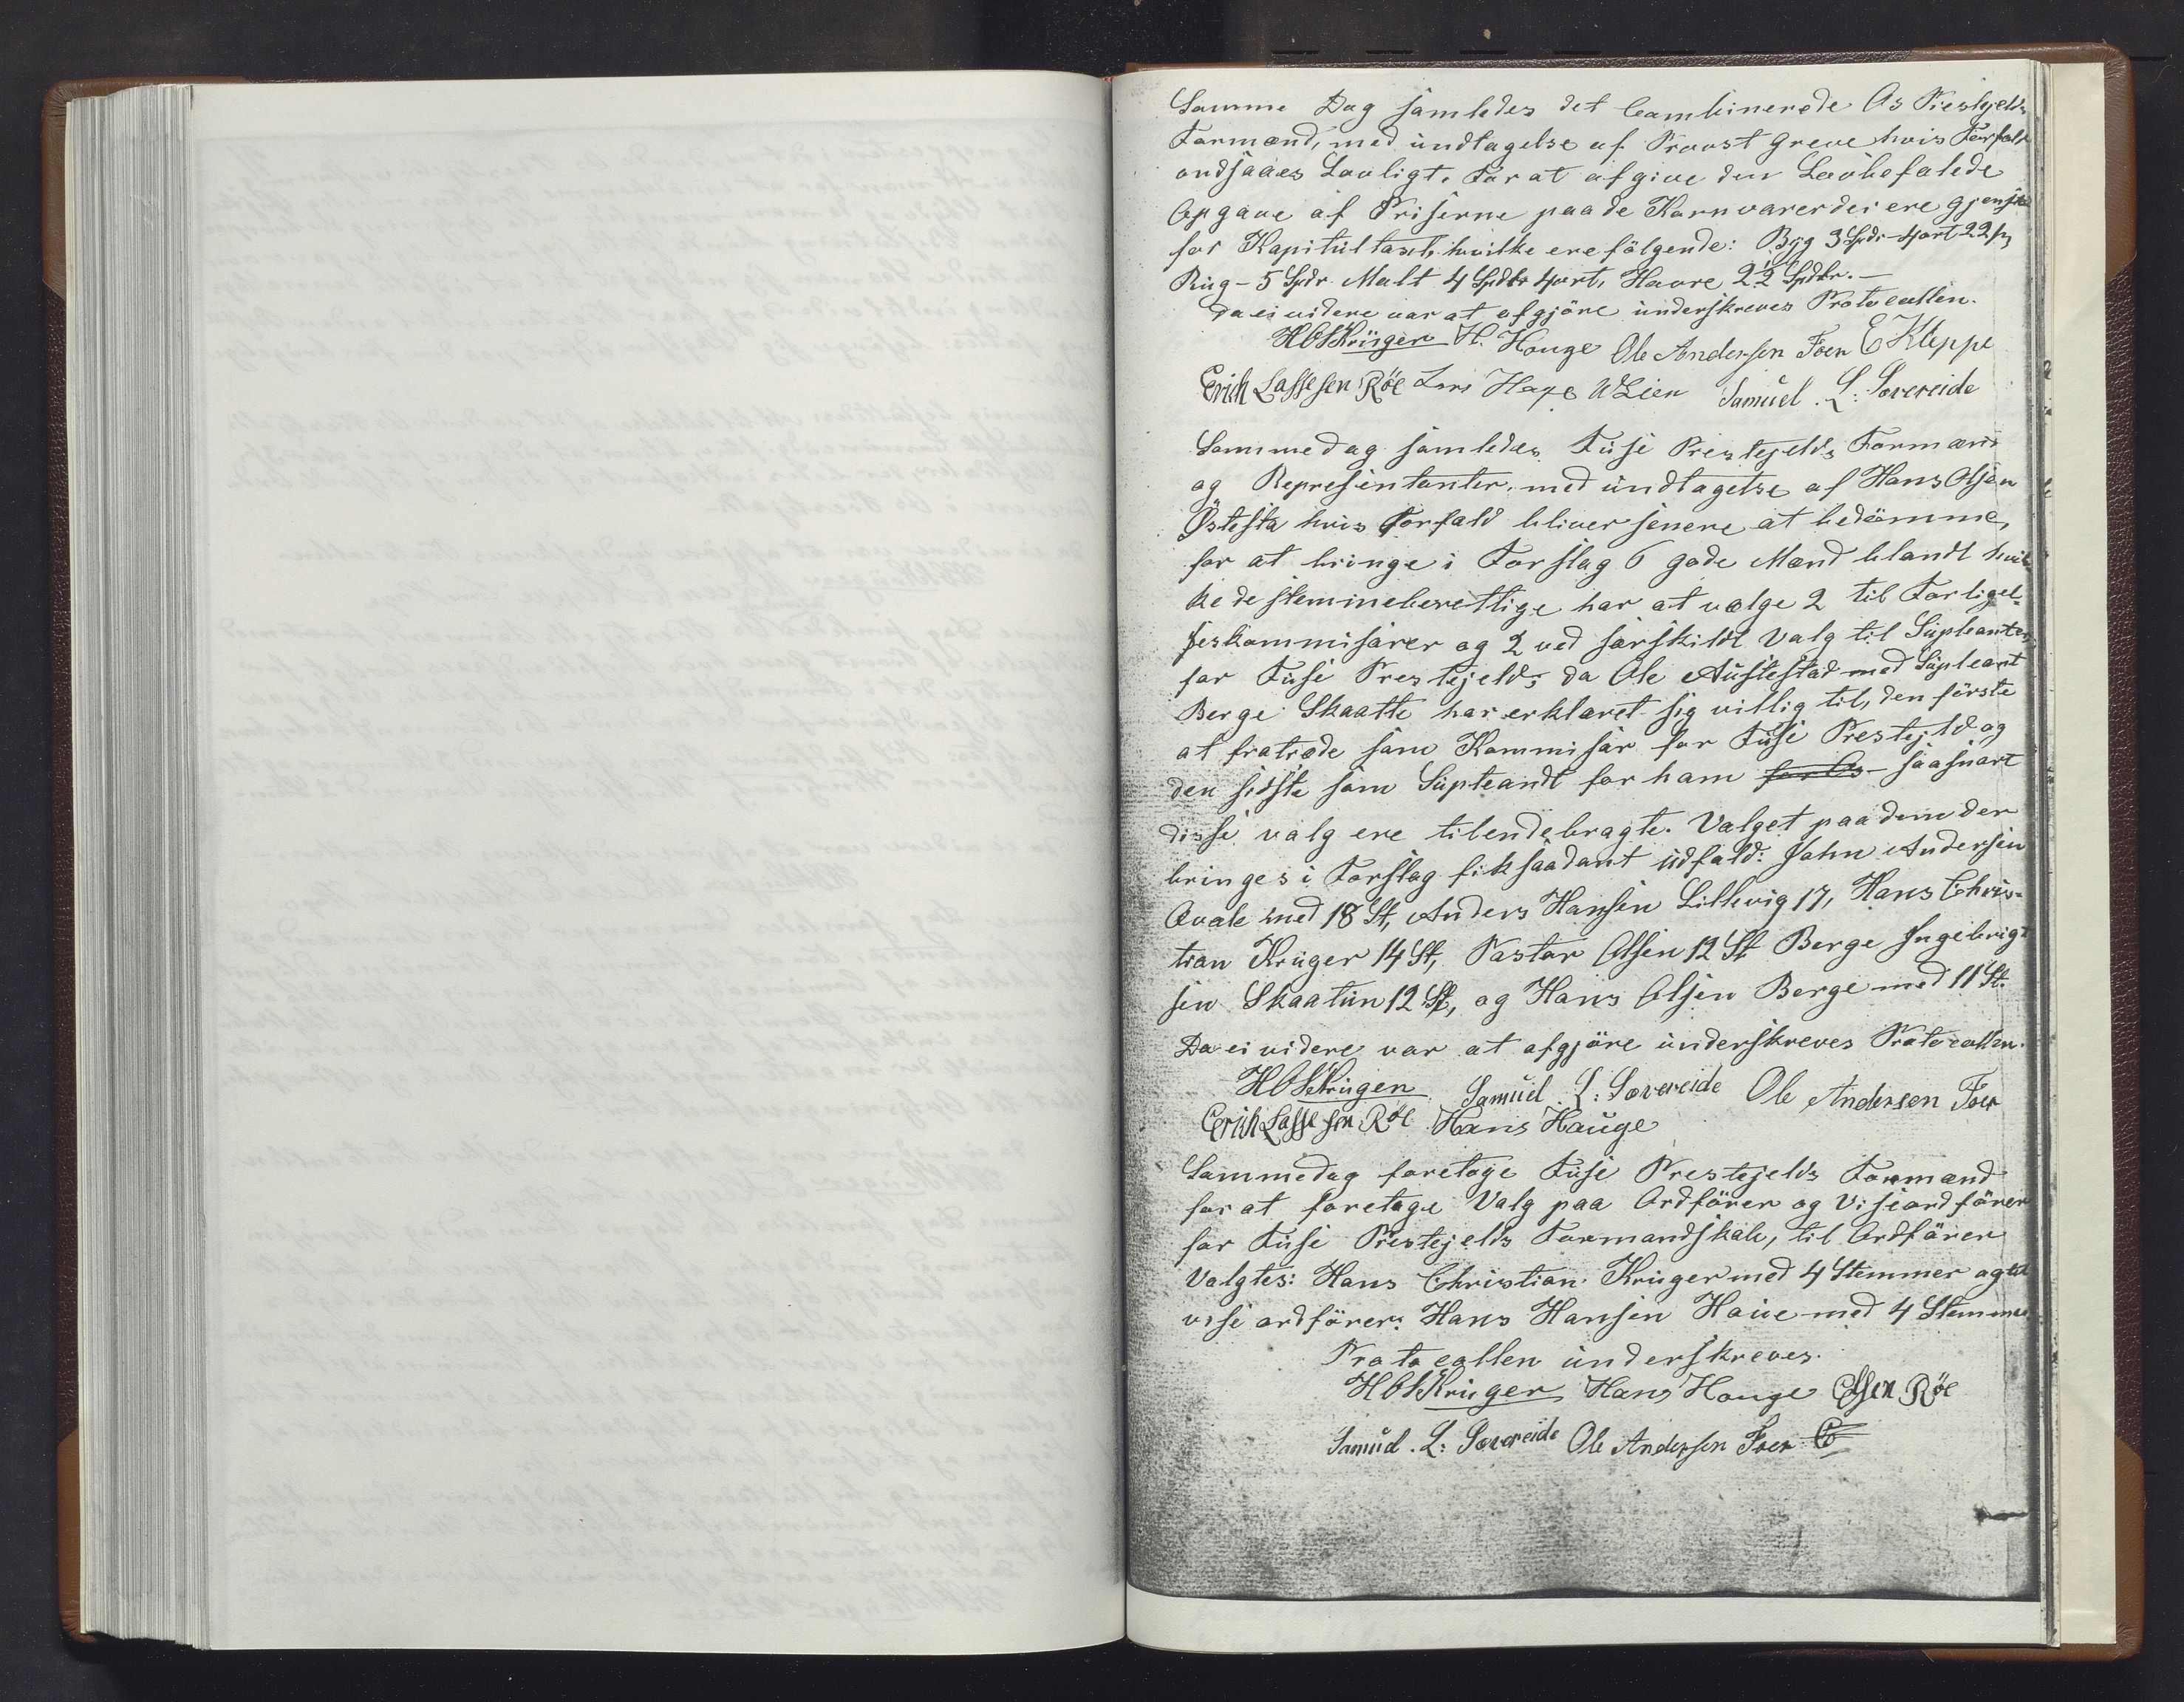 Samme Dag samledes det Combinerede Os Prestejelds
Formænd, med undtagelse af Provst Greve hvis Forfald
andsaaes Lovligt. For at afgive den Lovbefalede
Opgave af Priserne paa de Kornvarer der ere
for Kapitültaxt hvilke ere fölgende: Byg 3 Spdr 4 ort 22 s
Rüg - 5 Spdr Malt 4 Spdlr 4 ort, Havre 2½ Spdlr. -
Da ei videre var at afgjöre ünderskreves Protocollen.
HCSKrüger H. Houge Ole Andersen Foer E Kleppe
Erich Lassesen Röe Lars Hage Samüel L: Sovereide
Sammedag samledes Füse Prestejelds Formænd
og Representanter, med undtagelse af Hans Olsen
Östefta hvis Forfald bliver senere at bedömme,
for at bringe i Forslag 6 gode Mænd blandt hvil-
ke de stemmeberettige har at vælge 2 til Forligel-
seskommisærer og 2 ved særskildt Valg til Süpleanter
for Füse Prestejeld; da Ole Aüstestad med Süpleant
Berge Skaatte har erklæret sig villig til, den förste
at fratræde som Kommisær for Füse Prestejeld og
den sidste som Süpleandt for ham for Os saasnart
disse valg ere tilendebragte. Valget paa dem der
bringes i Forslag fik saadant üdfald: John Andersen
Qvale med 18 St, Anders Hansen Lillevig 17, Hans Chris-
tian Krüger 14 St, Pastor Olsen 12 St Berge Ingebrigt
sen Skaatün 12 St, og Hans Olsen Berge med 11 St.
Da ei videre var at afgjöre ünderskreves Protocollen.
HCSKrügen Samüel L: Sovereide Ole Andersen Foer
Erich Lassesen Röe Hans Haüge
Sammedag foretoge Füse Prestejelds Formænd
for at foretage Valg paa Ordförer og Viseordförer
for Füse Prestejelds Formandskab, til Ordförer
Valgtes: Hans Christian Krüger med 4 Stemmer og til
vise ordförer: Hans Hansen Haüe med 4 Stemmer
Protocollen ünderskreves.
HCSKrüger Hans Houge ELsen Röe
Samüel L: Sovereide Ole Andersen Foer